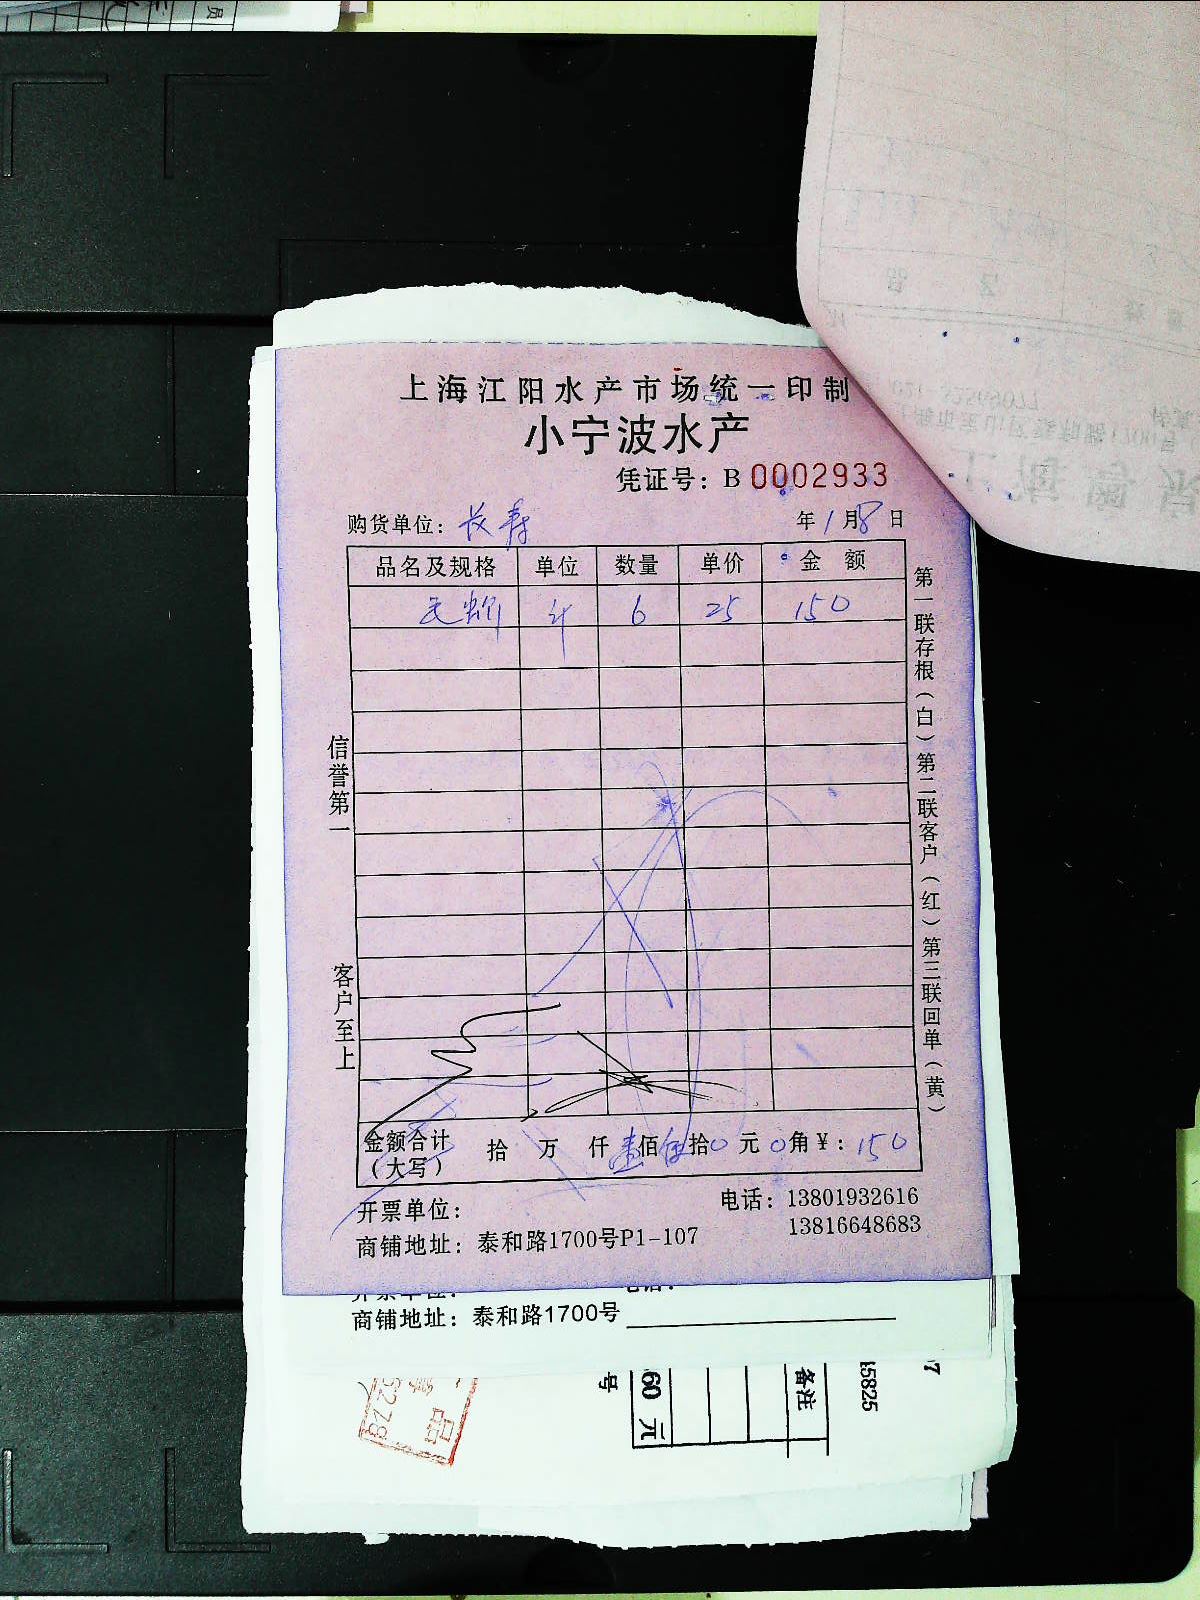 员
上海江阳水产市场统一印制
小宁波水产
凭证号：B 0002933
购货单位：长寿 年1月8日
品名及规格 单位 数量 单价 金额
斤 6 25 150
信誉第一
客户至上
第一联存根（白）第二联客户（红）第三联回单（黄）
金额合计（大写） 拾 万 仟 壹佰 伍拾 0 元 0 角 ¥：150
开票单位：
电话：13801932616
13816648683
商铺地址：泰和路1700号P1-107
商铺地址：泰和路1700号
号
60 元
备注
15825
7
品